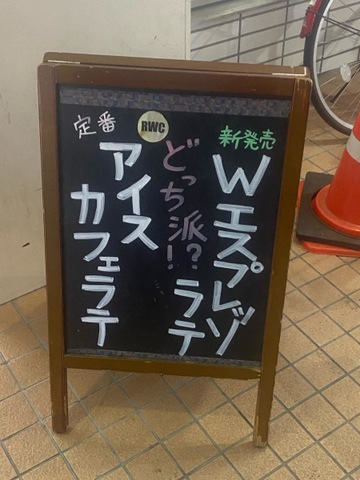 新発売
Wエスプレッゾ
ラテ
どっち派!?
RWC
定番
アイス
カフェラテ